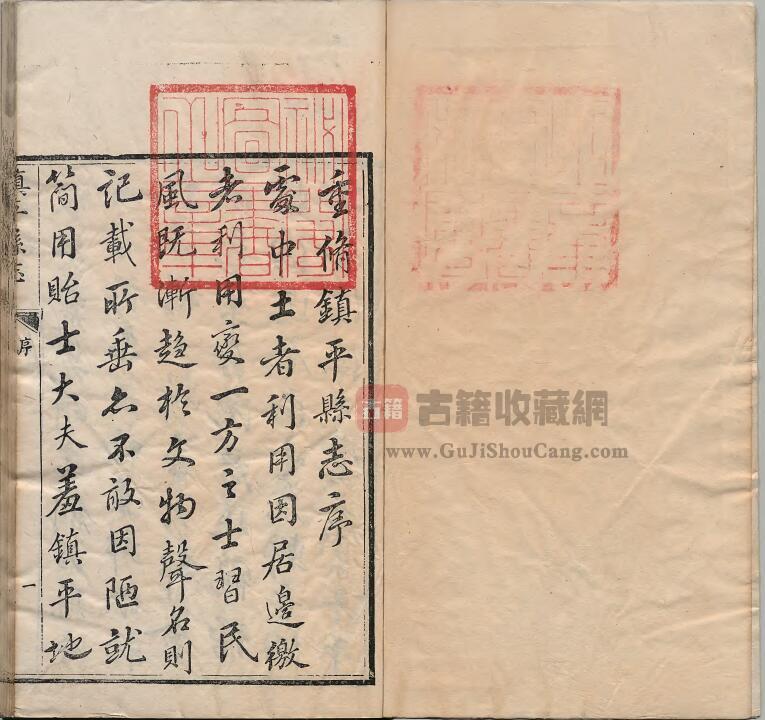 重脩鎮平縣志序
處中土者利用因居邊徼
者利用變一方之士習民
風既漸趋於文物聲名則
記載所垂名不敢因陋就
簡用貽士大夫羞鎮平地
鎮平縣志
序
一
古籍
古籍收藏網
www.GuJiShouCang.com